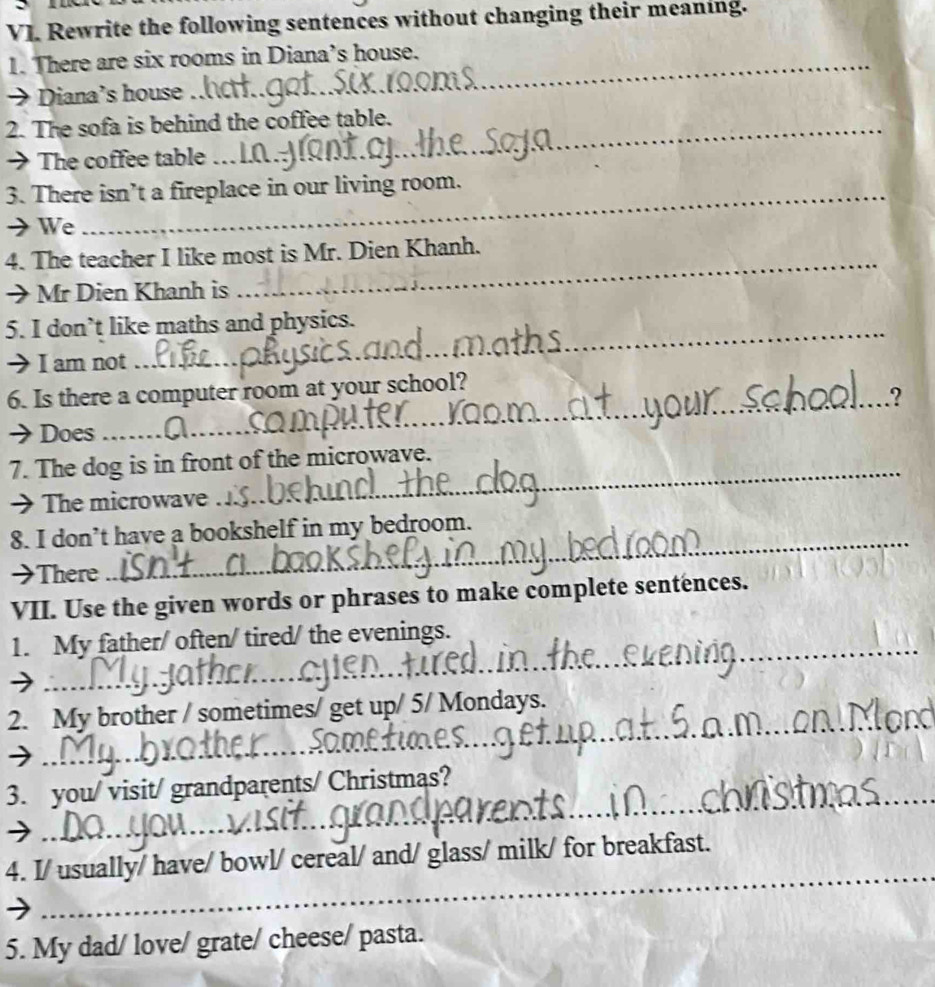 VI. Rewrite the following sentences without changing their meaning.
1. There are six rooms in Diana's house.
→ Diana's house ..hat..got...six..rooms
2. The sofa is behind the coffee table.
→ The coffee table ...in front of...the...sofa
3. There isn't a fireplace in our living room.
→ We
4. The teacher I like most is Mr. Dien Khanh.
→ Mr Dien Khanh is
5. I don't like maths and physics.
→ I am not ... physics and...maths
6. Is there a computer room at your school?
→ Does .......a.......computer.....room...at....your...school....?
7. The dog is in front of the microwave.
→ The microwave ..is..behind...the....dog
8. I don't have a bookshelf in my bedroom.
→There ..isn't.....a....bookshelf in...my...bedroom
VII. Use the given words or phrases to make complete sentences.
1. My father/ often/ tired/ the evenings.
→ .....My father.....often...tired..in..the...evening
2. My brother / sometimes/ get up/ 5/ Mondays.
→ ..My...brother.....sometimes...get up..at..5.a.m...on Mond
3. you/ visit/ grandparents/ Christmas?
→ ...Do..you....visit...grandparents.....in.....christmas
4. I/ usually/ have/ bowl/ cereal/ and/ glass/ milk/ for breakfast.
→
5. My dad/ love/ grate/ cheese/ pasta.